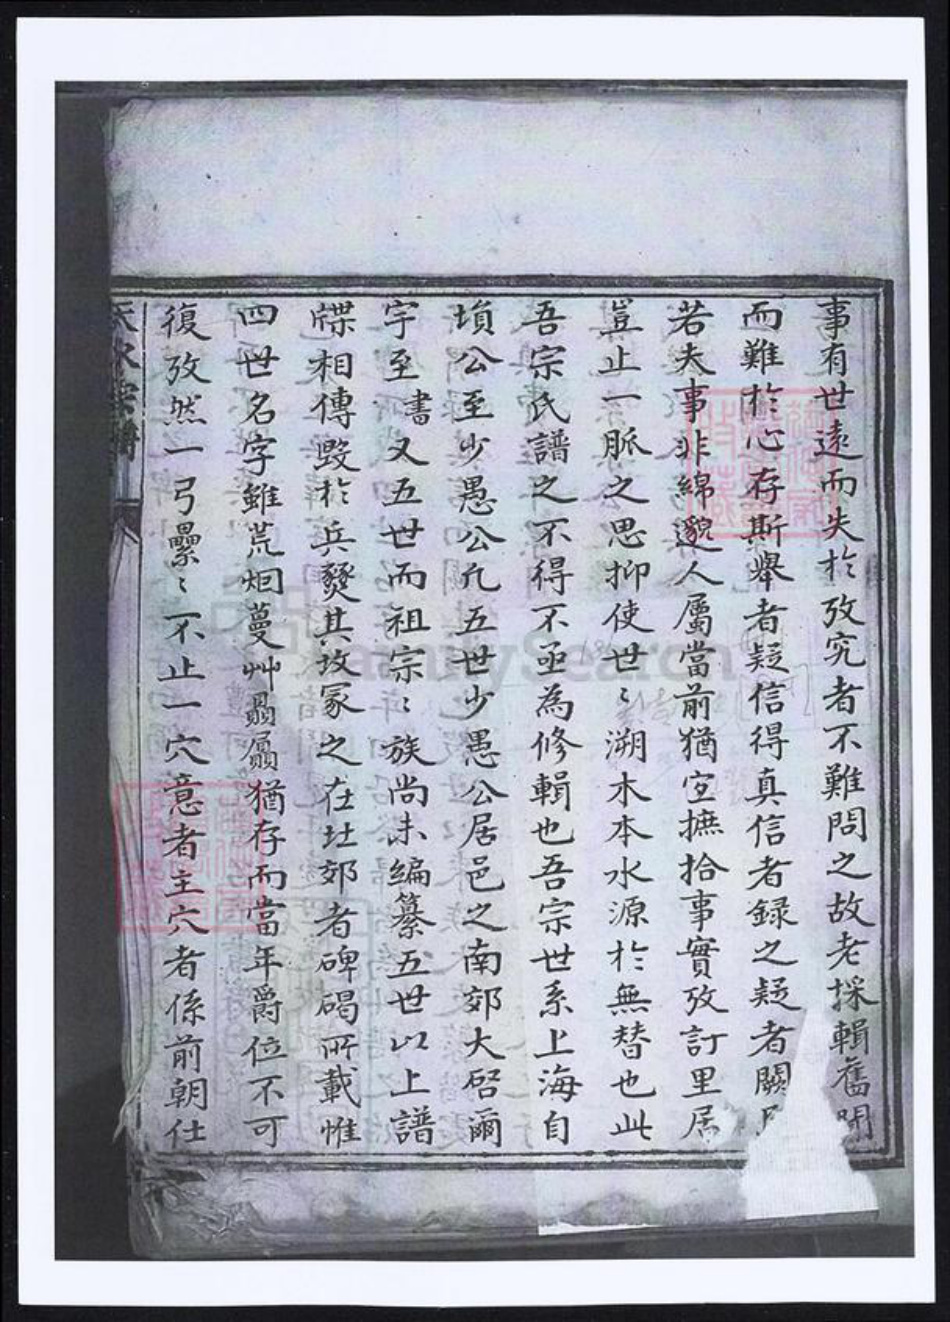 事有世遠而失於攷究者不難問之故老採輯舊聞
而難於心存斯舉者疑信得真信者録之疑者闕
若夫事非綿邈人屬當前猶宜摭拾事實攷訂里居
豈止一脈之思抑使世〻溯木本水源於無替也此
吾宗氏譜之不得不亟為修輯也吾宗世系上海自
塤公至少愚公凢五世少愚公居邑之南郊大啓爾
宇至書又五世而祖宗〻族尚未編纂五世以上譜
牒相傳毀於兵燹其故冢之在北郊者碑碣所載惟
四世名字雖荒烟蔓艸贔屭猶存而當年爵位不可
復攷然一弓纍〻不止一穴意者主穴者係前朝仕
天水宗譜
FamilySearch